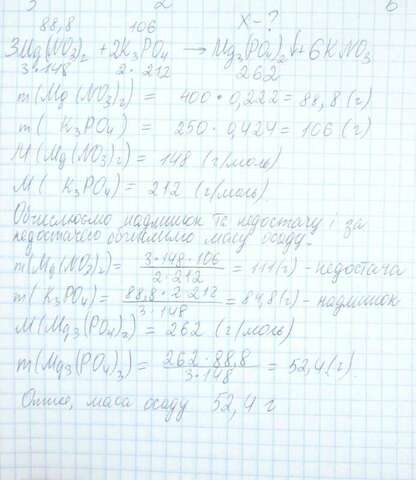 88,8 106 x-?
3Mg(NO3)2 + 2K3PO4 → Mg3(PO4)2↓ + 6KNO3
3·148 2·212 262
m(Mg(NO3)2) = 400·0,222 = 88,8 (г)
m(K3PO4) = 250·0,424 = 106 (г)
M(Mg(NO3)2) = 148 (г/моль)
M(K3PO4) = 212 (г/моль)
Обчислюємо надлишок та недостачу і за
недостачею обчислимо масу осаду.
m(Mg(NO3)2) = 3·148·106 / 2·212 = 111(г) - недостача
m(K3PO4) = 88,8·2·212 / 3·148 = 84,8(г) - надлишок
M(Mg3(PO4)2) = 262 (г/моль)
m(Mg3(PO4)2) = 262·88,8 / 3·148 = 52,4(г)
Отже, маса осаду 52,4 г